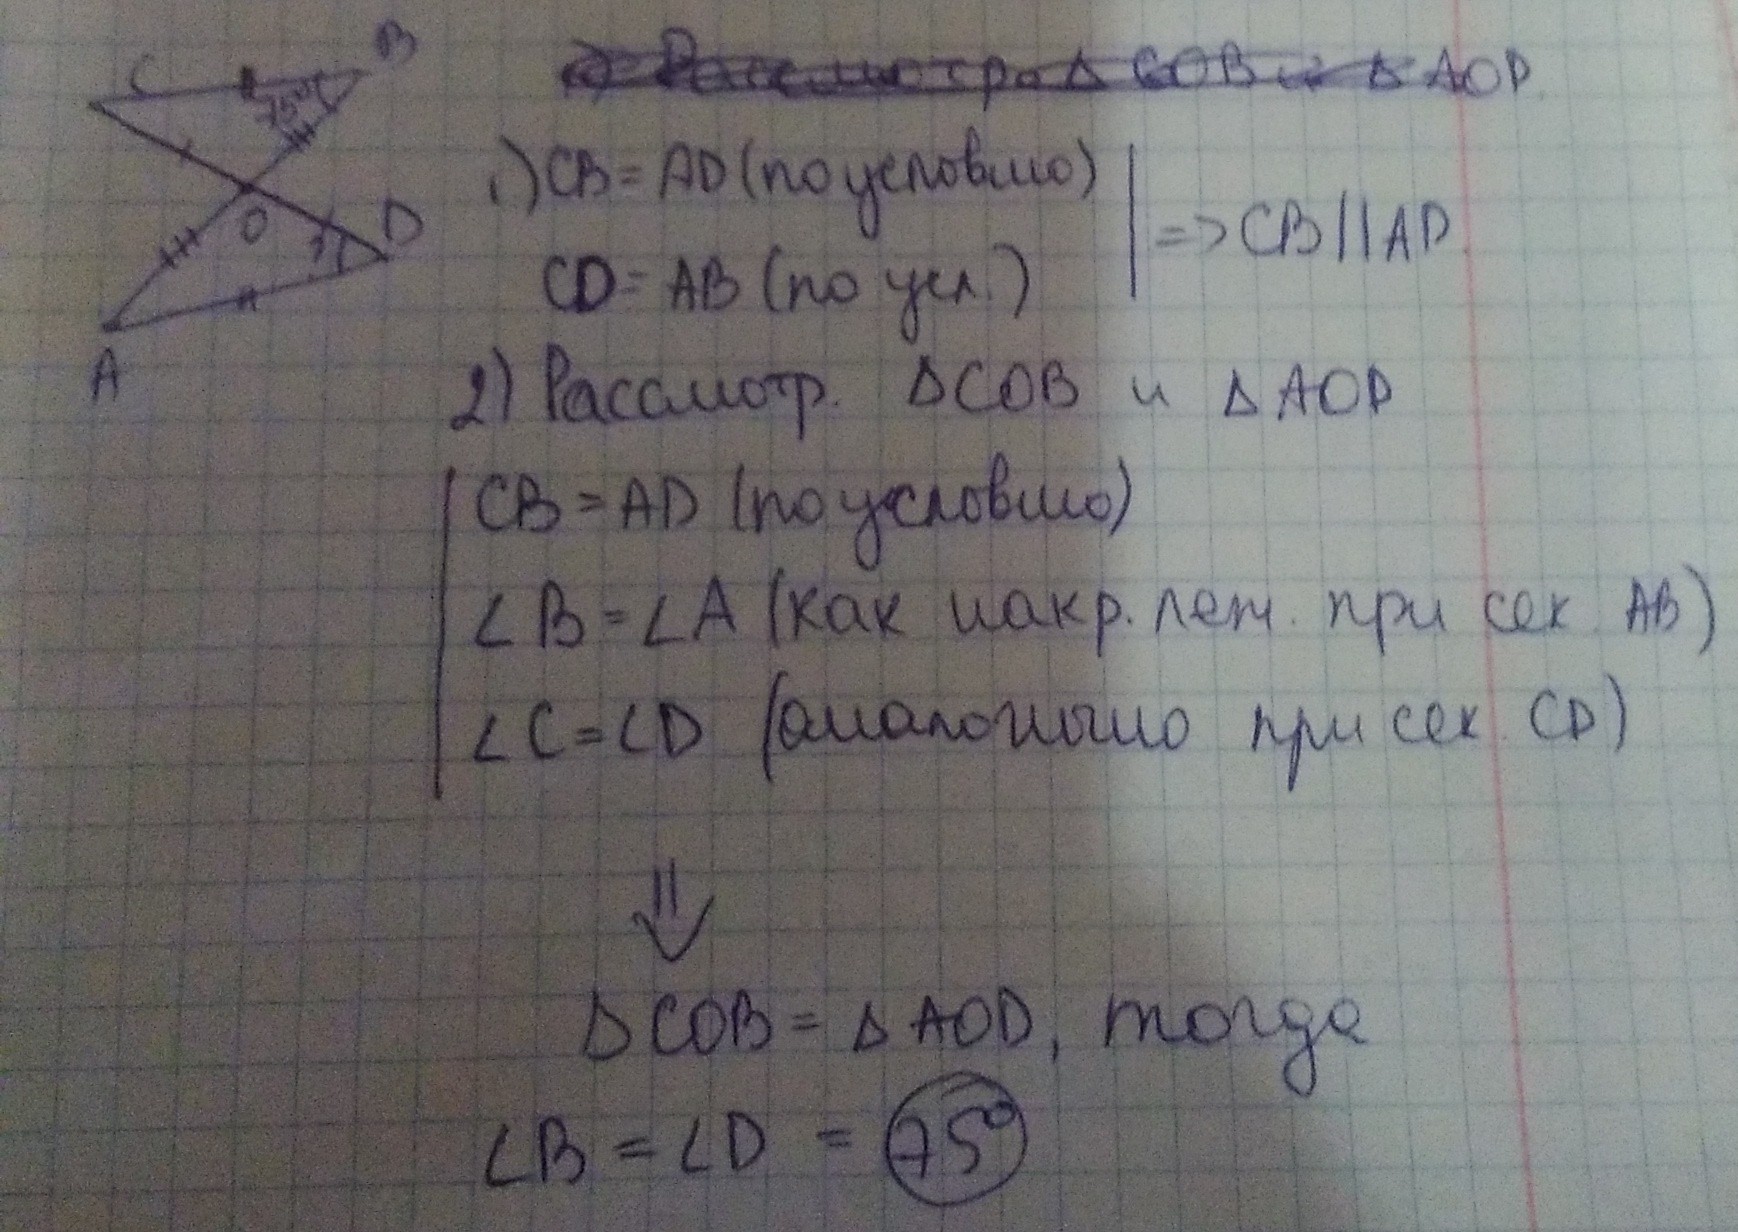 C B
75°
O D
?
A
Рассмотр. Δ COB и Δ AOD
1.) CB = AD (по условию)
CD = AB (по усл.)
=> CB || AD
2) Рассмотр. Δ COB и Δ AOD
CB = AD (по условию)
∠B = ∠A (как накр. леж. при сек AB)
∠C = ∠D (аналогично при сек. CD)
⇓
Δ COB = Δ AOD, тогда
∠B = ∠D = 75°